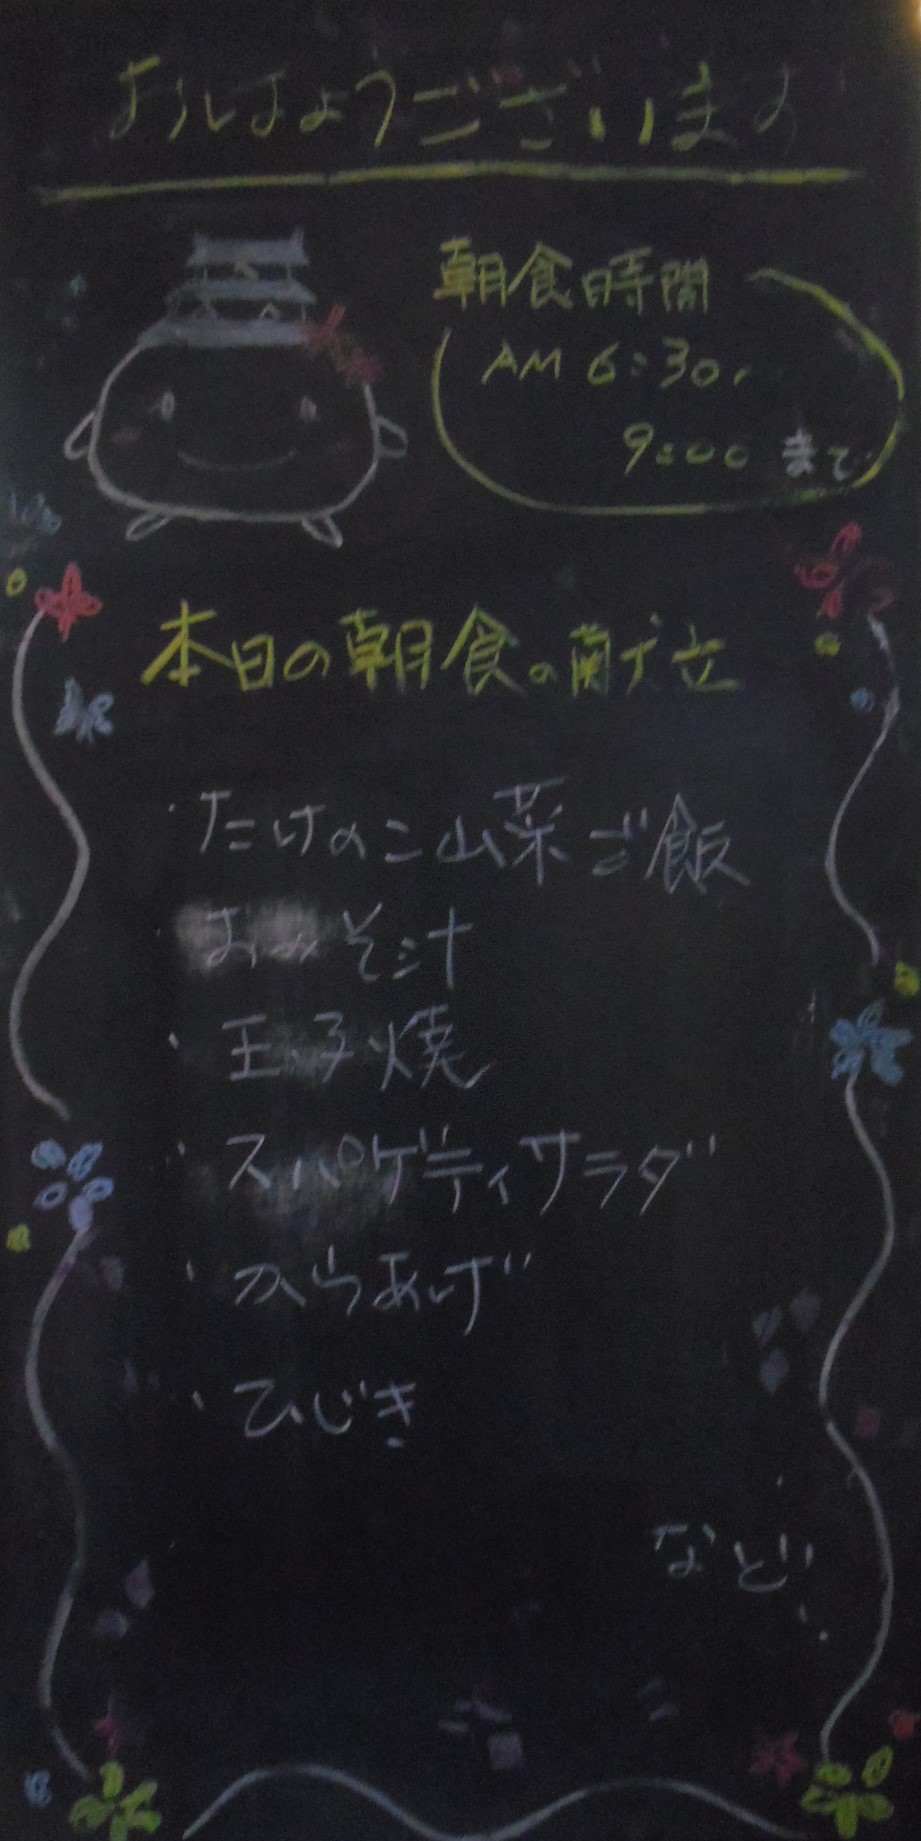 おはようございます
朝食時間
AM 6:30〜
9:00 まで
本日の朝食の献立
・たけのこ山菜ご飯
・おみそ汁
・玉子焼
・スパゲティサラダ
・からあげ
・ひじき
など…